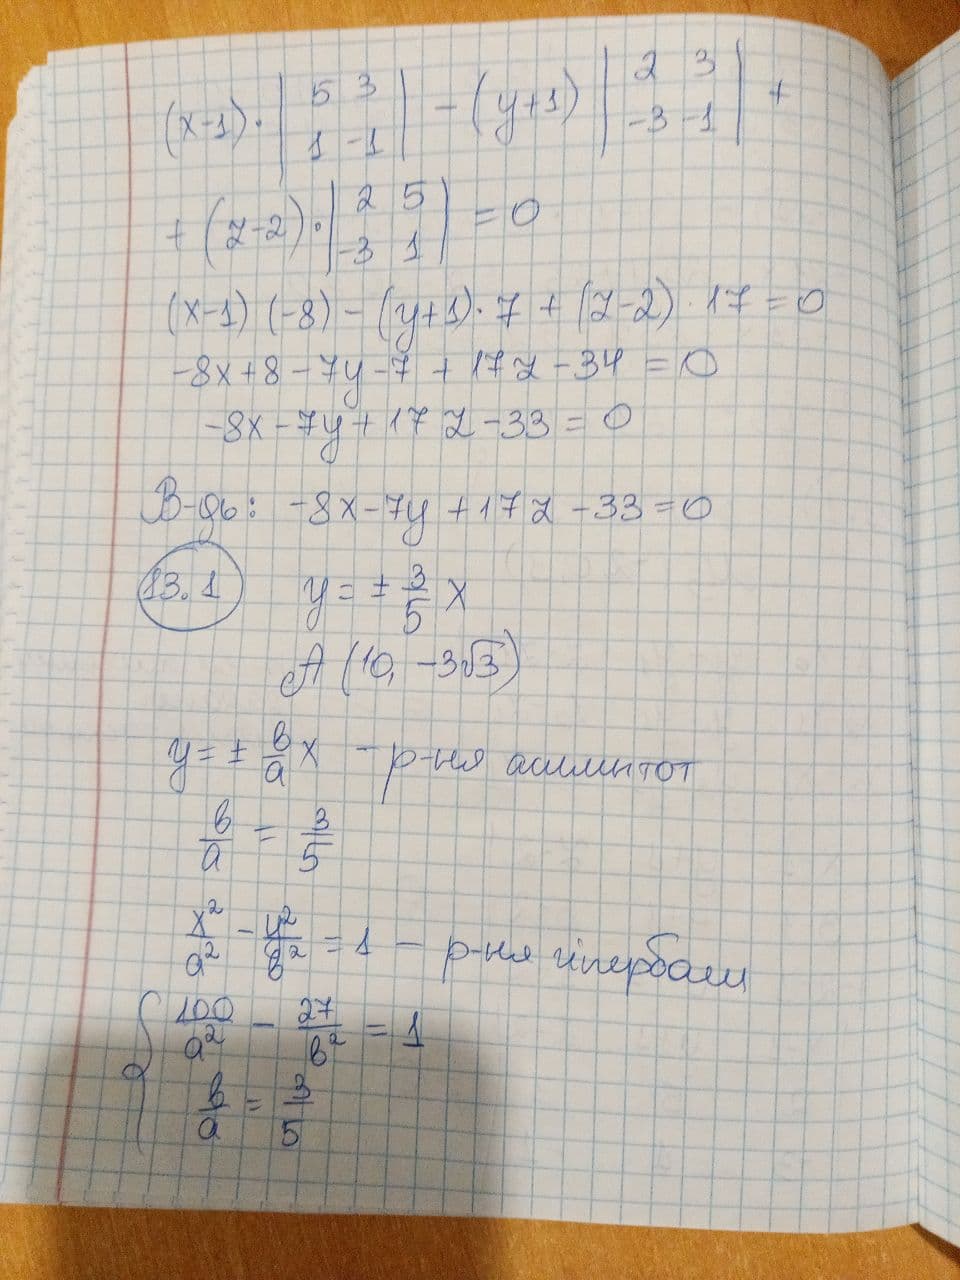 (x-1)·|5 3; 1 -1| - (y+1)|2 3; -3 -1| +
+ (z-2)·|2 5; -3 1| = 0
(x-1)(-8) - (y+1)·7 + (z-2)·17 = 0
-8x+8-7y-7+17z-34=0
-8x-7y+17z-33=0
В-дь: -8x-7y+17z-33=0
13.1 y = ± 3/5 x
A (10, -3√3)
y = ± в/a x - р-ня асимптот
в/a = 3/5
x²/a² - y²/в² = 1 - р-ня гіперболи
{ 100/a² - 27/в² = 1
в/a = 3/5